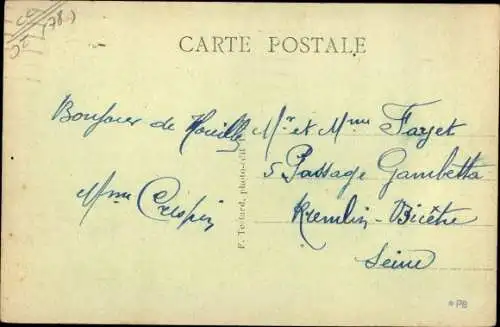 (78)
CARTE POSTALE
Bonjour de Houilles
Mme Crespin
F. Testard, photo-édit
Mr et Mme Farjet
5 Passage Gambetta
Kremlin-Bicêtre
Seine
*PB